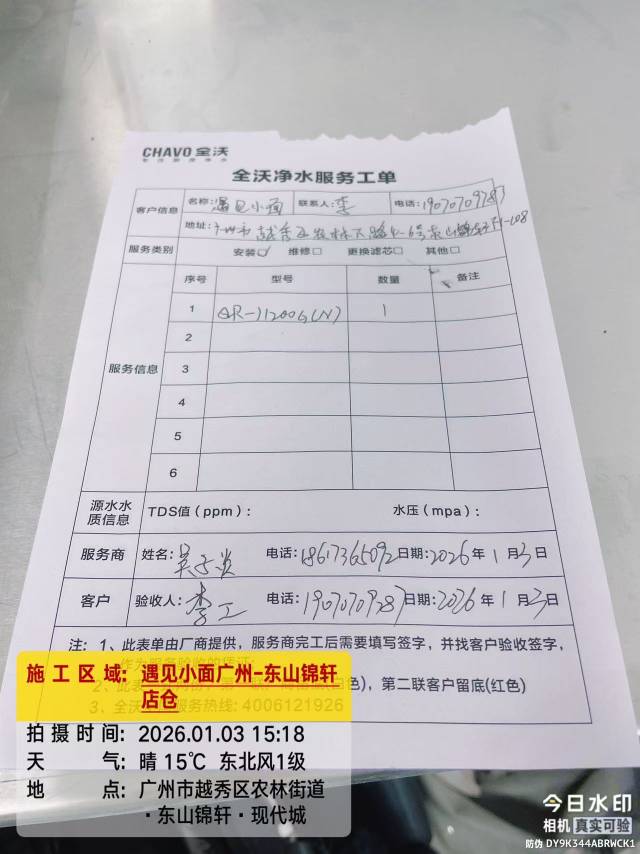 CHAVO 全沃
全沃净水服务工单
客户信息 名称: 遇见小面 联系人: 李 电话: 19070709787
地址: 广州市越秀区农林下路
服务类别 安装☑ 维修□ 更换滤芯□ 其他□
服务信息 序号 型号 数量 备注
1 QR-J1200G(N) 1
2
3
4
5
6
源水水质信息 TDS值（ppm）: 水压（mpa）:
服务商 姓名: 电话: 18617365092 日期: 2026 年 1 月 3 日
客户 验收人: 李工 电话: 19070709287 日期: 2026 年 1 月 3 日
注: 1、此表单由厂商提供，服务商完工后需要填写签字，并找客户验收签字，
第二联客户留底(红色)
3、全沃 服务热线: 4006121926
施工区域: 遇见小面广州-东山锦轩店仓
拍摄时间: 2026.01.03 15:18
天气: 晴 15℃ 东北风1级
地点: 广州市越秀区农林街道
·东山锦轩·现代城
今日水印
相机 真实可验
防伪 DY9K344ABRWCK1